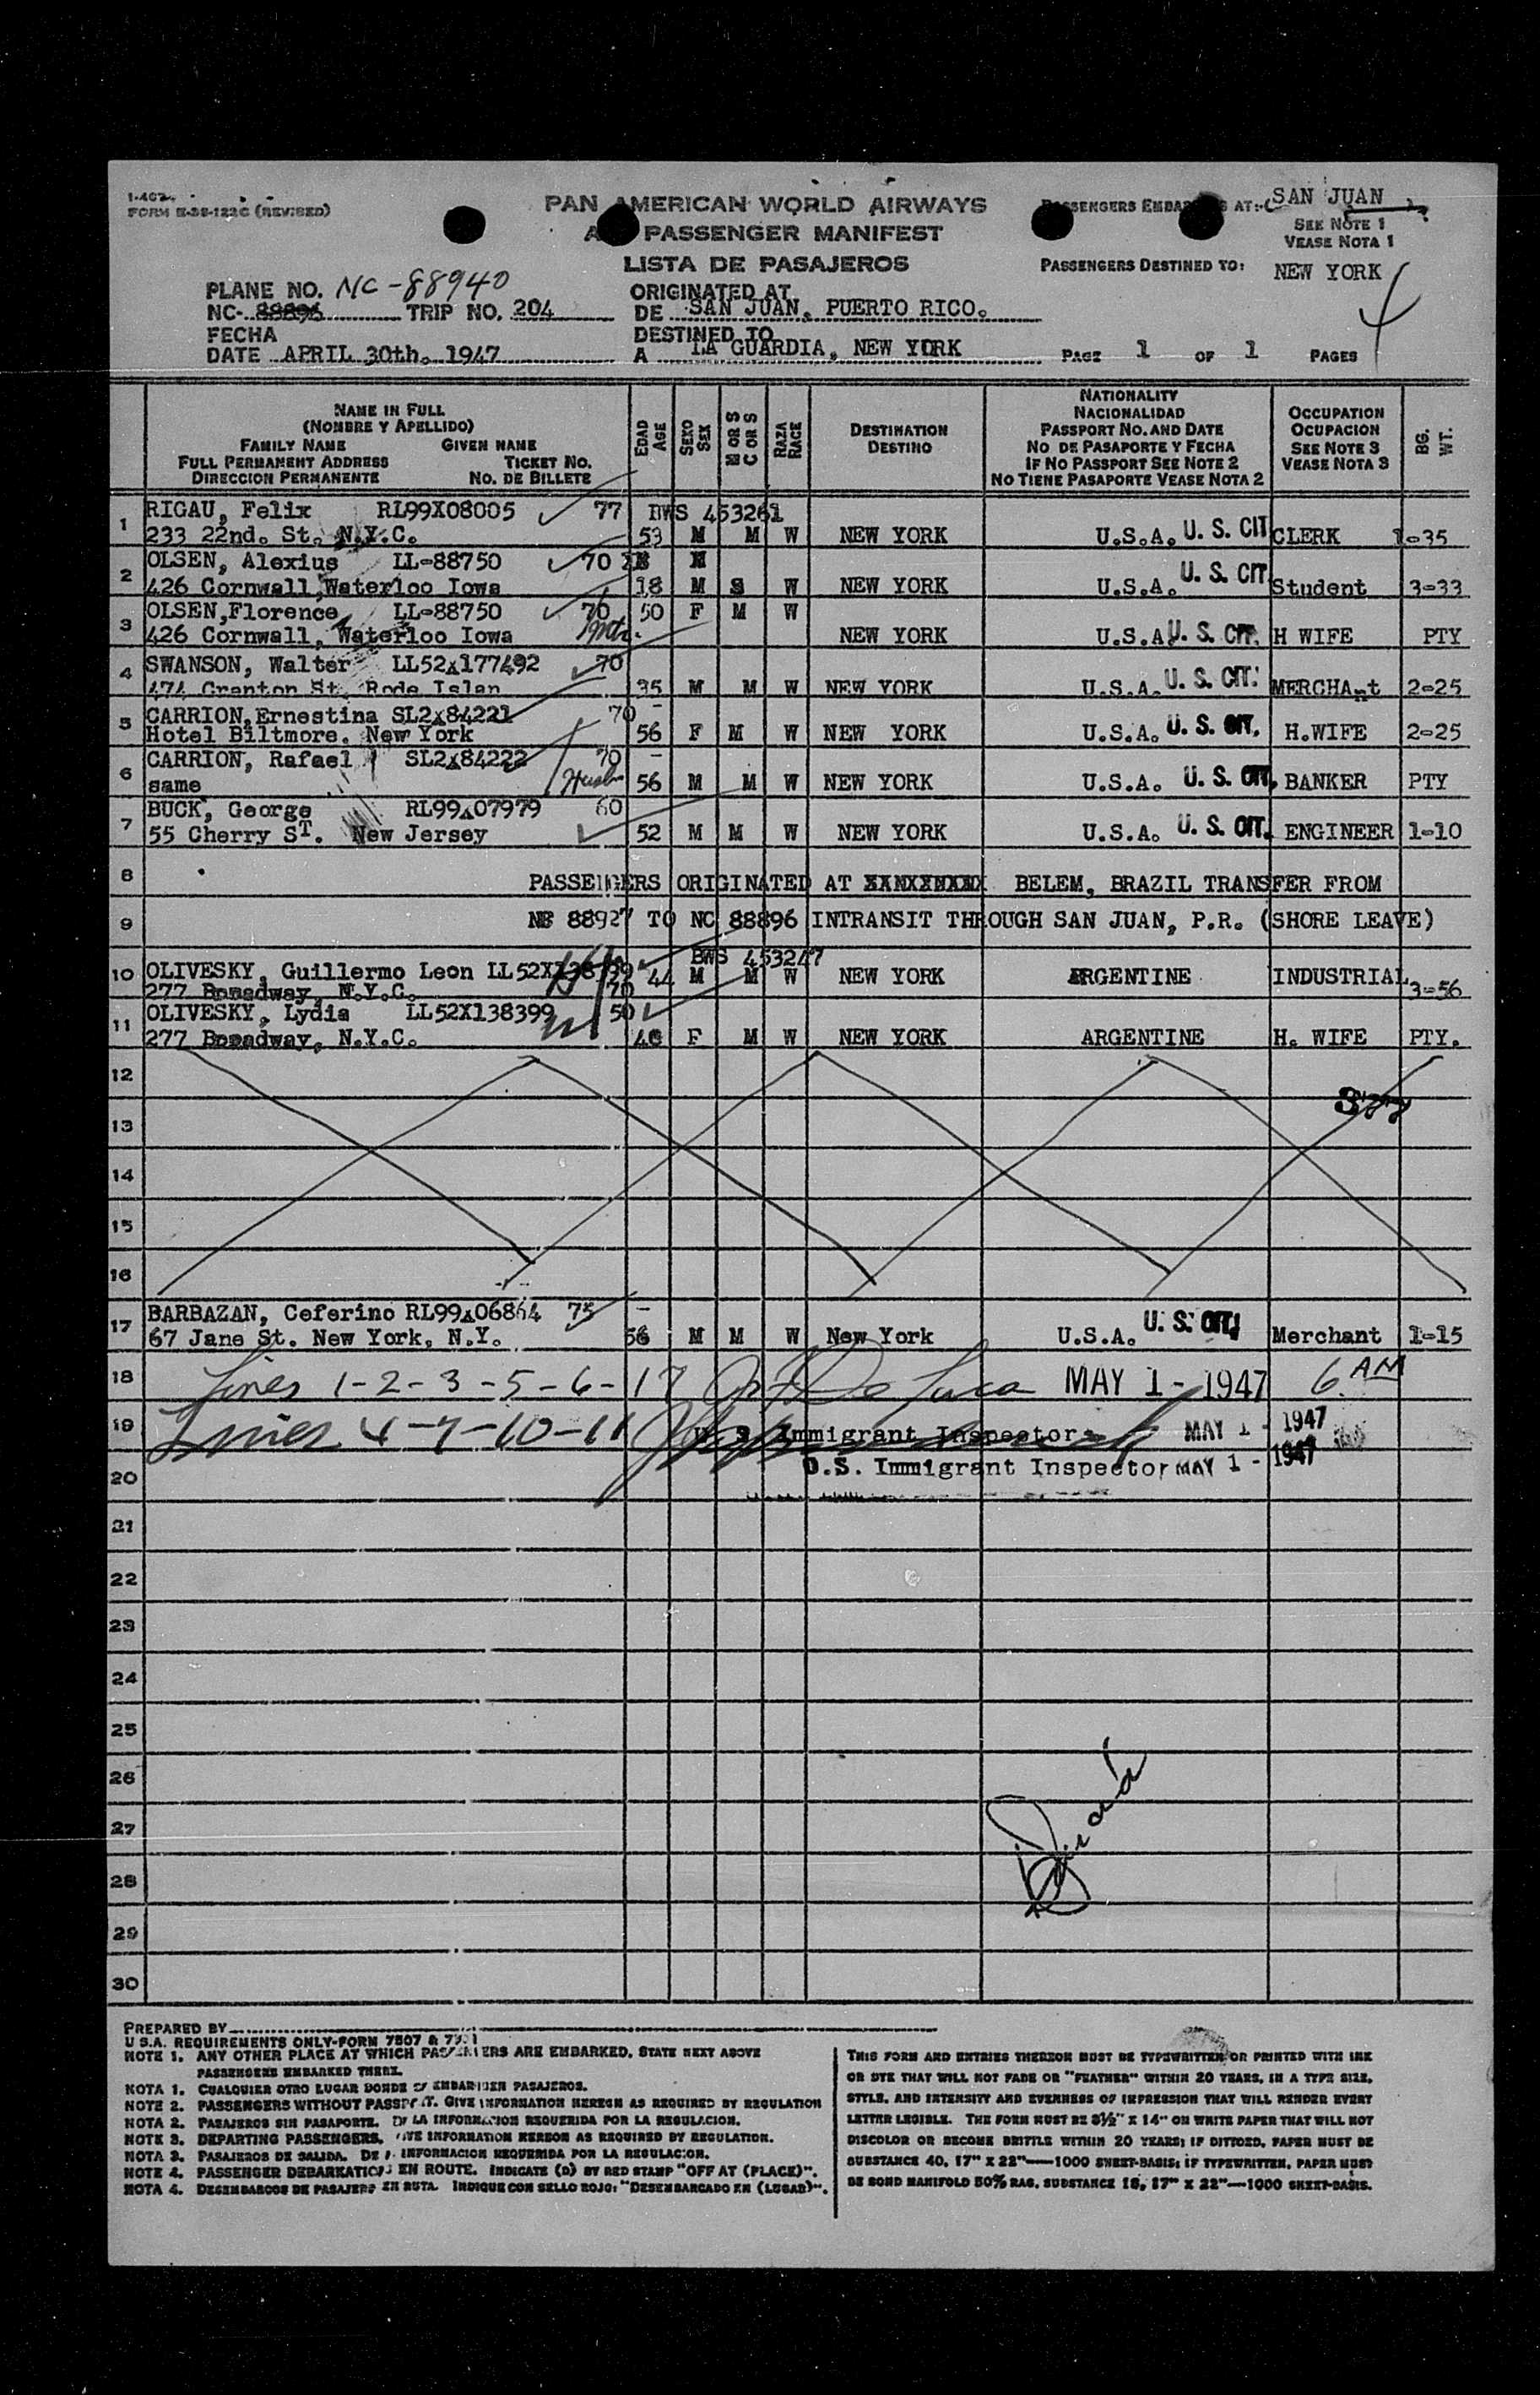 I-407
FORM E-35-122C (REVISED)
PAN AMERICAN WORLD AIRWAYS
PASSENGER MANIFEST
LISTA DE PASAJEROS
PASSENGERS EMBARKED AT:-(SAN JUAN)
SEE NOTE 1
VEASE NOTA 1
PASSENGERS DESTINED TO: NEW YORK
4
PLANE NO. NC-88940
NC- 88896 TRIP NO. 204
FECHA
DATE APRIL 30th. 1947
ORIGINATED AT
DE SAN JUAN, PUERTO RICO.
DESTINED TO
A LA GUARDIA, NEW YORK
PAGE 1 OF 1 PAGES
NAME IN FULL
(NOMBRE Y APELLIDO)
FAMILY NAME GIVEN NAME
FULL PERMANENT ADDRESS TICKET NO.
DIRECCION PERMANENTE NO. DE BILLETE
EDAD AGE
SEXO SEX
M OR S C OR S
RAZA RACE
DESTINATION
DESTINO
NATIONALITY
NACIONALIDAD
PASSPORT NO. AND DATE
NO DE PASAPORTE Y FECHA
IF NO PASSPORT SEE NOTE 2
NO TIENE PASAPORTE VEASE NOTA 2
OCCUPATION
OCUPACION
SEE NOTE 3
VEASE NOTA 3
BG. WT.
1 RIGAU, Felix RL99X08005 77 BWS 453261
233 22nd. St. N.Y.C. 53 M M W NEW YORK U.S.A. U. S. CIT CLERK 1-35
2 OLSEN, Alexius LL-88750 70
426 Cornwall, Waterloo Iowa 18 M S W NEW YORK U.S.A. U. S. CIT Student 3-33
3 OLSEN,Florence LL-88750 70 50 F M W
426 Cornwall, Waterloo Iowa Mth. NEW YORK U.S.A U. S. CIT. H WIFE PTY
4 SWANSON, Walter LL52X177492 70
474 Cranton St. Rode Islan 35 M M W NEW YORK U.S.A. U. S. CIT. MERCHAnt 2-25
5 CARRION,Ernestina SL2X84221 70 -
Hotel Biltmore. New York 56 F M W NEW YORK U.S.A. U. S. CIT. H.WIFE 2-25
6 CARRION, Rafael SL2X84222 70 -
same Husb 56 M M W NEW YORK U.S.A. U. S. CIT. BANKER PTY
7 BUCK, George RL99X07979 60
55 Cherry ST. New Jersey 52 M M W NEW YORK U.S.A. U. S. CIT. ENGINEER 1-10
8 PASSENGERS ORIGINATED AT BELEM, BRAZIL TRANSFER FROM
9 NC 88927 TO NC 88896 INTRANSIT THROUGH SAN JUAN, P.R. (SHORE LEAVE)
10 OLIVESKY, Guillermo Leon 44 M M W BWS 453247 NEW YORK ARGENTINE INDUSTRIAL 3-56
277 Broadway, N.Y.C. 70
11 OLIVESKY, Lydia LL52X138399 50
277 Broadway, N.Y.C. F M W NEW YORK ARGENTINE H. WIFE PTY.
12
13
14
15
16
17 BARBAZAN, Ceferino RL99X06864 75 -
67 Jane St. New York, N.Y. 56 M M W New York U.S.A. U. S. CIT. Merchant 1-15
18 Lines 1-2-3-5-6-17 De Luca MAY 1 - 1947 6 AM
19 Lines 4-7-10-11 U. S. Immigrant Inspector MAY 1 - 1947
20 U.S. Immigrant Inspector MAY 1 - 1947
21
22
23
24
25
26
27
28
29
30
PREPARED BY
U S.A. REQUIREMENTS ONLY-FORM 7507 &
NOTE 1. ANY OTHER PLACE AT WHICH PASSENGERS ARE EMBARKED, STATE NEXT ABOVE
PASSENGERS EMBARKED THERE.
NOTA 1. CUALQUIER OTRO LUGAR DONDE SE EMBARQUEN PASAJEROS.
NOTE 2. PASSENGERS WITHOUT PASSPORT. GIVE INFORMATION HEREON AS REQUIRED BY REGULATION
NOTA 2. PASAJEROS SIN PASAPORTE. DE LA INFORMACION REQUERIDA POR LA REGULACION.
NOTE 3. DEPARTING PASSENGERS. GIVE INFORMATION HEREON AS REQUIRED BY REGULATION.
NOTA 3. PASAJEROS DE SALIDA. DE INFORMACION REQUERIDA POR LA REGULACION.
NOTE 4. PASSENGER DEBARKATIONS EN ROUTE. INDICATE (D) BY RED STAMP "OFF AT (PLACE)".
NOTA 4. DESEMBARCOS DE PASAJERO EN RUTA. INDIQUE CON SELLO ROJO: "DESEMBARCADO EN (LUGAR)".
THIS FORM AND ENTRIES THEREON MUST BE TYPEWRITTEN OR PRINTED WITH INK
OR DYE THAT WILL NOT FADE OR "FEATHER" WITHIN 20 YEARS, IN A TYPE SIZE,
STYLE, AND INTENSITY AND EVENNESS OF IMPRESSION THAT WILL RENDER EVERY
LETTER LEGIBLE. THE FORM MUST BE 8½" X 14" ON WHITE PAPER THAT WILL NOT
DISCOLOR OR BECOME BRITTLE WITHIN 20 YEARS; IF DITTOED, PAPER MUST BE
SUBSTANCE 40, 17" X 22"—1000 SHEET-BASIS; IF TYPEWRITTEN, PAPER MUST
BE BOND MANIFOLD 50% RAG, SUBSTANCE 18, 17" X 22"—1000 SHEET-BASIS.